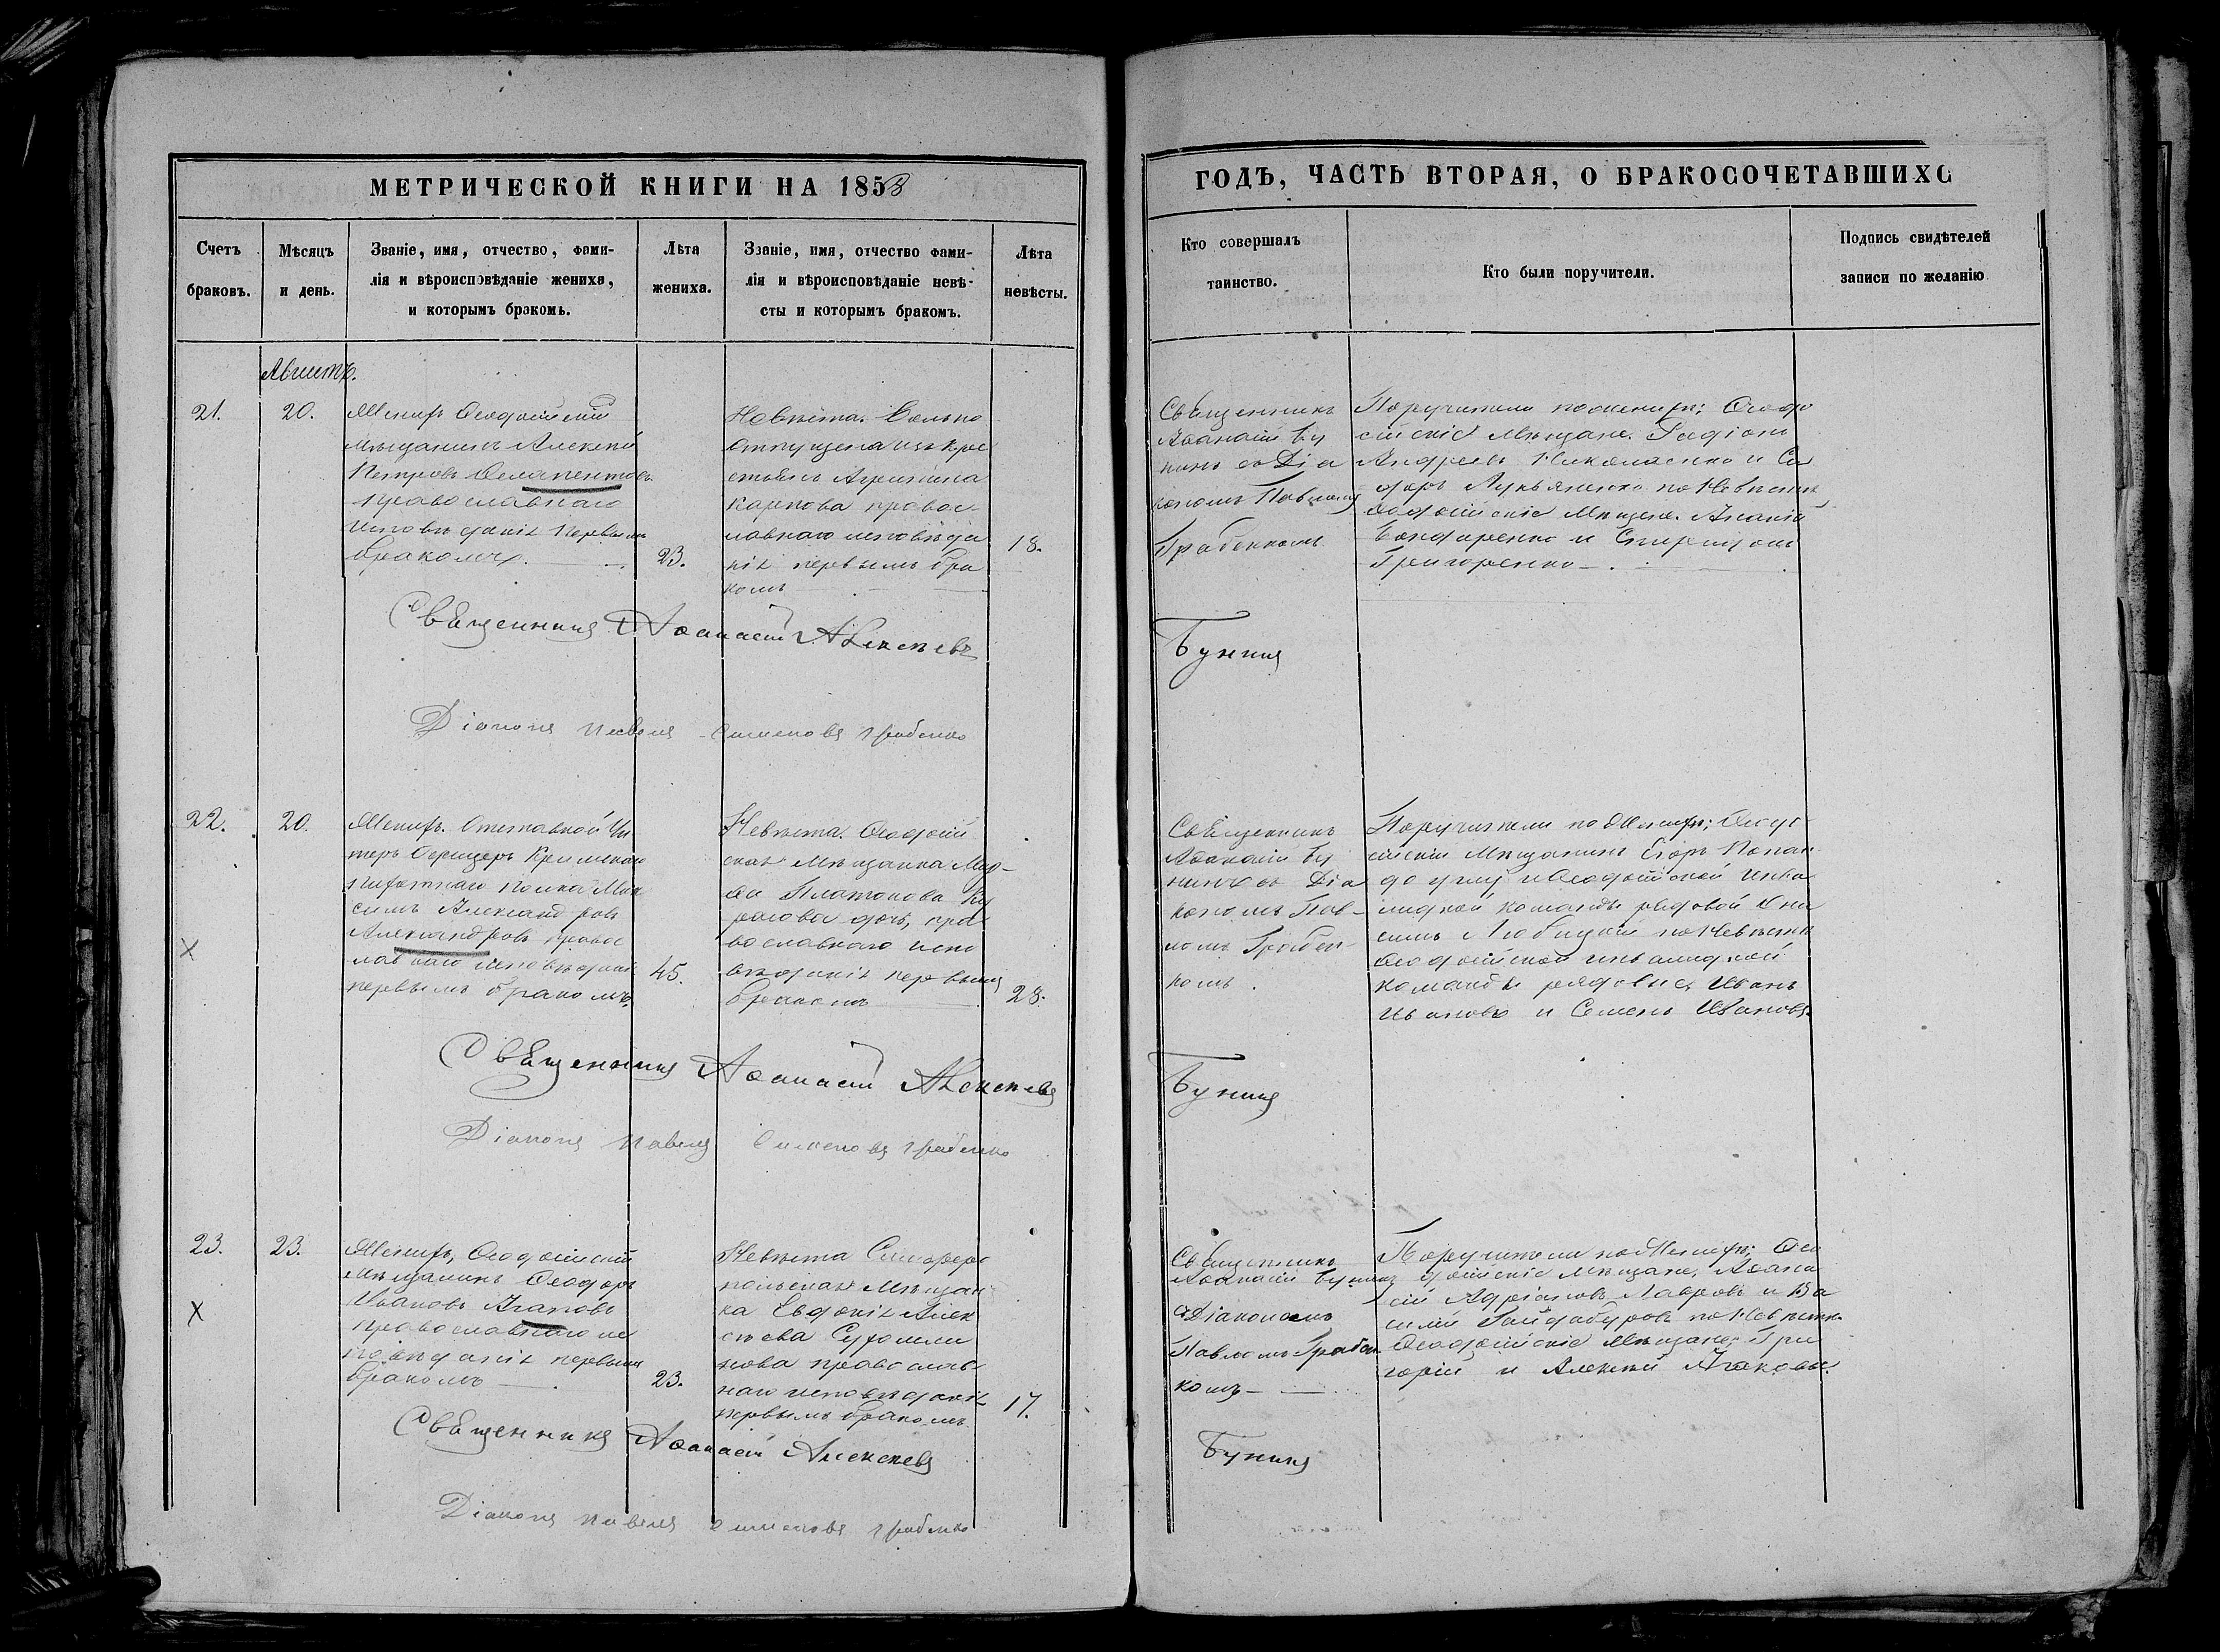 МЕТРИЧЕСКОЙ КНИГИ НА 1858
ГОДЪ, ЧАСТЬ ВТОРАЯ, О БРАКОСОЧЕТАВШИХС
Счетъ
браковъ.
Мѣсяцъ
и день.
Званіе, имя, отчество, фами-
лія и вѣроисповѣданіе жениха,
и которымъ бракомъ.
Лѣта
жениха.
Званіе, имя, отчество фами-
лія и вѣроисповѣданіе невѣ-
сты и которымъ бракомъ.
Лѣта
невѣсты.
Кто совершалъ
таинство.
Кто были поручители.
Подпись свидѣтелей
записи по желанію
Августъ.
21.
20.
Женихъ Ѳеодосійскій
мѣщанинъ Алексѣй
Петровъ
православнаго
исповѣданія первымъ
бракомъ.
23.
Невѣста. Вольно
отпущена изъ кре
стьянъ
Карпова правос-
лавнаго исповѣда
нія первымъ бра
комъ
18.
Священникъ
Аѳанасій Бу
нинъ съ Діа
кономъ Павломъ
Грабенкомъ
Поручители по женихѣ: Ѳеодо
сійскіе Мѣщане. Родіонъ
Андреевъ Николаенко и Си
доръ Лукьяненко по Невѣстѣ
Ѳеодосійскіе Мѣщане.
Бондаренко и Спиридонъ
Григоренко
Священникъ Аѳанасій Алексѣевъ
Бунинъ
Діаконъ Павелъ Симеоновъ Грабенко
22.
20.
Женихъ. Отставной Ун
теръ Офицеръ Крымскаго
пѣхотнаго полка Мак
симъ Александровъ
Александровъ правос
лавнаго исповѣданія
первымъ бракомъ.
45.
Невѣста. Ѳеодосій
ская Мѣщанка
Платонова
дочь, пра
вославнаго испо
вѣданія первымъ
бракомъ
28.
Священникъ
Аѳанасій Бу
нинъ съ Діа
кономъ Пав-
ломъ Грабен-
комъ.
Поручители по Женихѣ; Ѳеодо
сійскій Мѣщанинъ Егоръ Попан
и Ѳеодосійской инва
лидной команды рядовой Они
симъ по Невѣстѣ
Ѳеодосійской инвалидной
команды рядовые Иванъ
Ивановъ и Семенъ Ивановъ.
Священникъ Аѳанасій Алексѣевъ
Бунинъ
Діаконъ Павелъ Симеоновъ Грабенко
23.
23.
Женихъ, Ѳеодосійскій
Мѣщанинъ Ѳеодоръ
Ивановъ Агаповъ
православнаго ис
повѣданія первымъ
бракомъ
23.
Невѣста Симферо
польская Мѣщан
ка Евдокія Алек
сѣева
нова православ
наго исповѣданія
первымъ бракомъ
17.
Священникъ
Аѳанасій Бунинъ
съ Діакономъ
Павломъ Грабен
комъ
Поручители по Женихѣ; Ѳео
досійскіе мѣщане, Аѳана
сій Адріановъ Лавровъ и Ва
силій Гайдабуровъ по Невѣстѣ
Ѳеодосійскіе Мѣщане; Гри
горій и Алексѣй
Священникъ Аѳанасій Алексѣевъ
Бунинъ
Діаконъ Павелъ Симеоновъ Грабенко